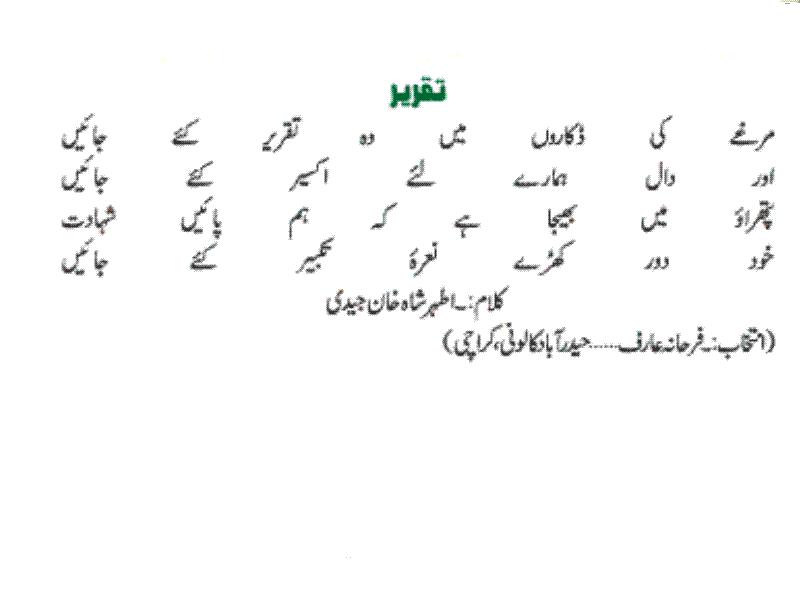 تقریر
مرغے کی ڈکاروں میں وہ تقریر کئے جائیں
اور دال ہمارے لئے اکسیر کئے جائیں
پتھراؤ میں بھیجا ہے کہ ہم پائیں شہادت
خود دور کھڑے نعرۂ تکبیر کئے جائیں
کلام:۔ اطہر شاہ خان جیدی
(انتخاب:۔ فرحانہ عارف.....حیدرآباد کالونی، کراچی)